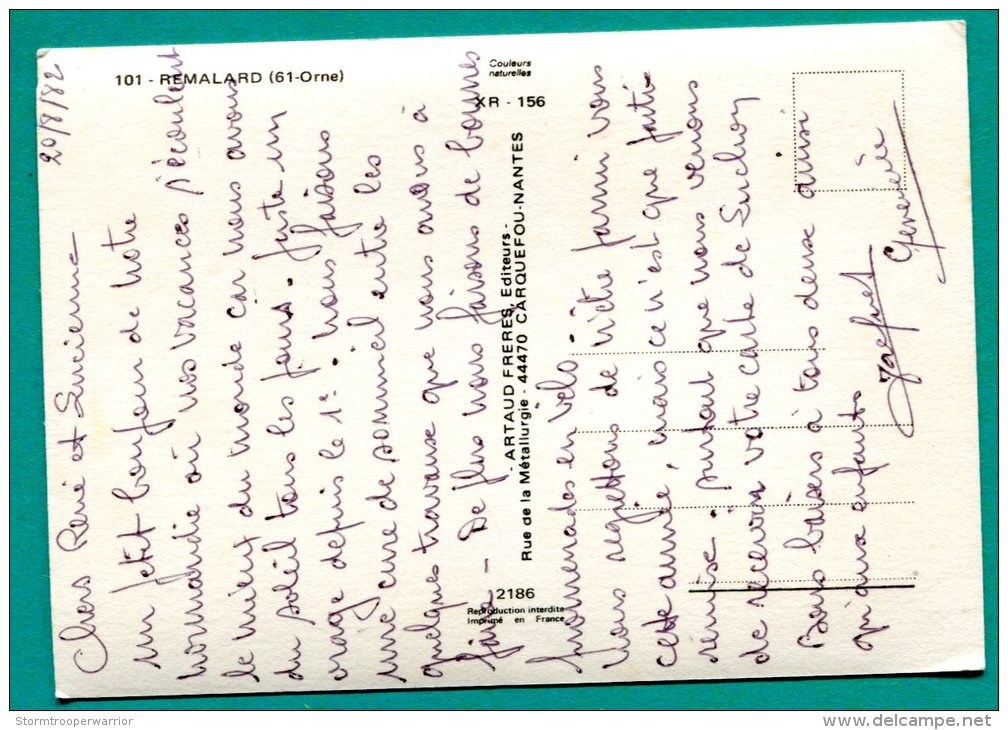 101 - REMALARD (61-Orne)
Couleurs
naturelles
XR - 156
- ARTAUD FRERES, Editeurs -
Rue de la Métallurgie - 44470 CARQUEFOU-NANTES
2186
Reproduction interdite
Imprimé en France
20/8/82
Chers René et Lucienne
un petit bonjour de notre
normandie où nos vacances s'écoulent
le mieux du monde car nous avons
du soleil tous les jours. Juste un
orage depuis le 1er. nous faisons
une cure de sommeil entre les
quelques travause que nous avons à
faire - De plus nous faisons de bonnes
promenades en vélo.
nous regrettons de n'être parmi vous
cette année, mais ce n'est que partie
remise. surtout que nous venons
de recevoir votre carte de Luchon
Bons baisers à tous deuse ainsi
qu'aux enfants
Geneviève
Stormtrooperwarrior
delcampe.net